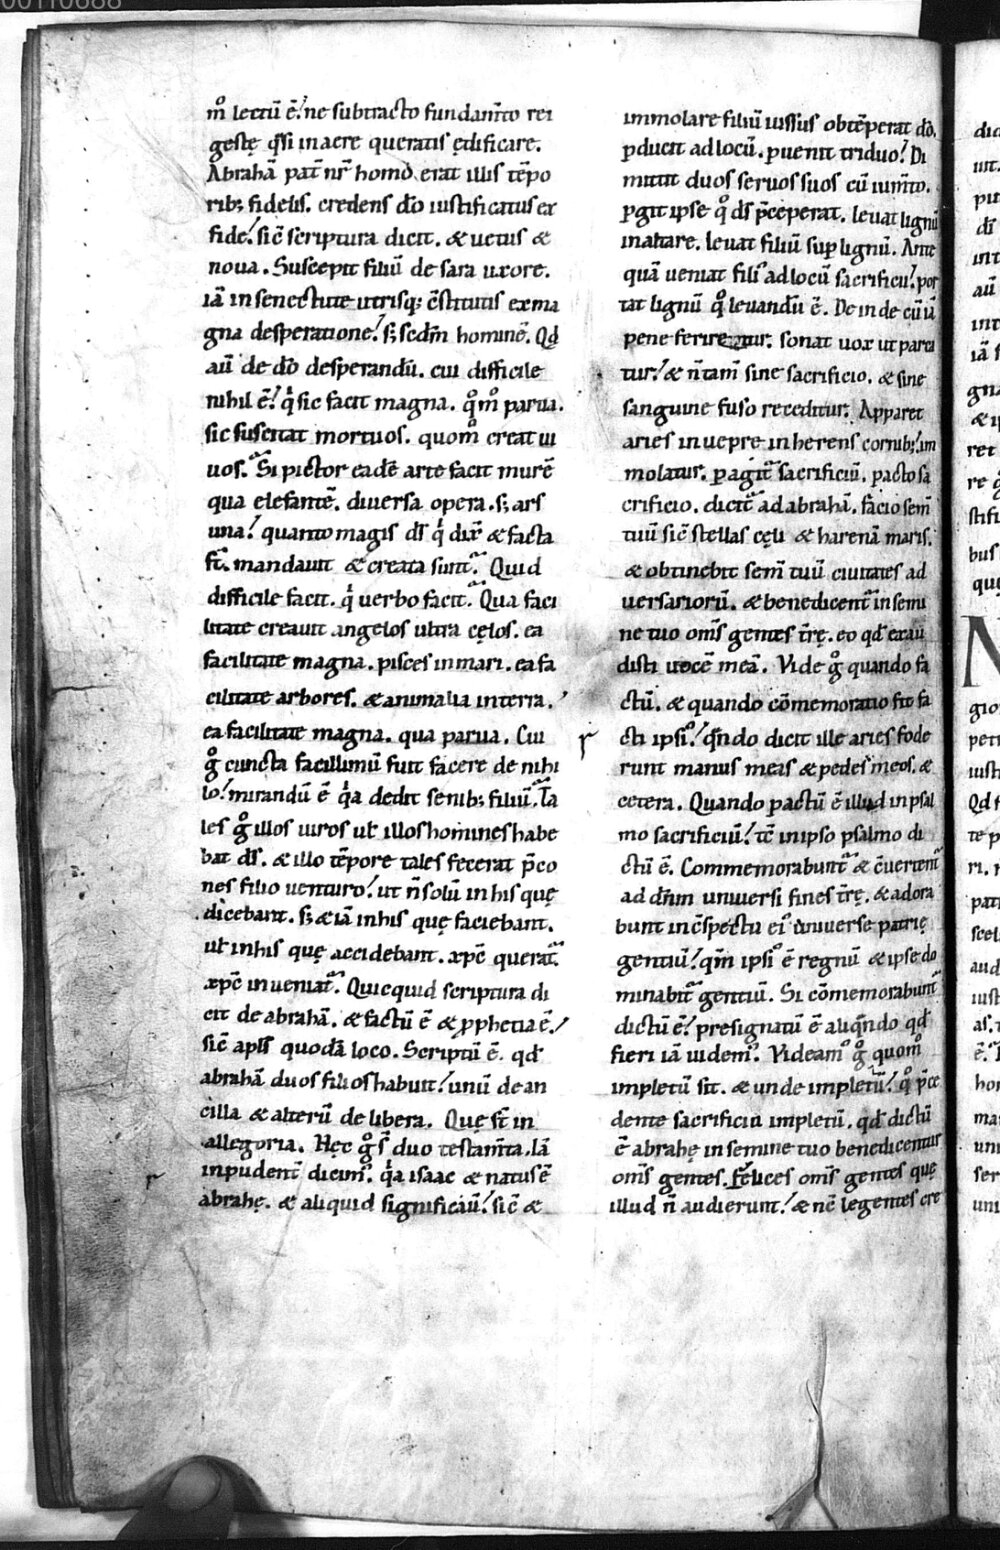 00110688
m̊ lectū ē ne subtracto fundam̄to rei
gestę q̄si in aere queratis ędificare.
Abrahā pat̄ nr̄ homo erat illis tēpo
rib; fidelis. credens dō iustificatus ex
fide. sic̄ scriptura dicit. & uetus &
noua. Suscepit filiū de sara uxore.
iā in senectute utrisq; c̄stitutis ex ma
gna desperatione. s; sedm̄ hominē. Qd
aū de dō desperandū. cui difficile
nihil ē. q' sic facit magna. qm̊ parua.
sic suscitat mortuos. quom̊ creat ui
uos. Si pictor eadē arte facit murē
qua elefantē. diuersa opera. s; ars
una. quanto magis ds̄ q' dix̄ & facta
st̄. mandauit & creata sunt. Quid
difficile facit. q' uerbo facit. Qua faci
litate creauit angelos ultra cęlos. ea
facilitate magna. pisces in mari. ea fa
cilitate arbores. & animalia in terra.
ea facilitate magna. qua parua. Cui
g̊ cuncta facillimū fuit facere de nihi
lo. mirandū ē q'a dedit senib; filiū. Ta
les g̊ illos uiros ul̄ illos homines habe
bat ds̄. & illo tēpore tales fecerat p̄co
nes filio uenturo. ut n̄ solū in his quę
dicebant. s; & iā in his quę faciebant.
ul̄ in his quę accidebant. xp̄c querat̄.
xp̄c inueniat̄. Quicquid scriptura di
cit de abrahā. & factū ē & p̱phetia ē.
sic̄ apls̄ quodā loco. Scriptū ē. qd̄
abrahā duos filios habuit. unū de an
cilla & alterū de libera. Quę st̄ in
allegoria. Hęc g̊ st̄ duo testam̄ta. Iā
inpudent̄ dicim'. q'a isaac & natus ē
abrahę. & aliquid significauit. sic̄ &
immolare filiū iussus obtēperat dō.
p̱ducit ad locū. p̱uenit triduo. Di
mittit duos seruos suos cū ium̄to.
p̱git ipse q̊ ds̄ p̄ceperat. leuat lignū
in altare. leuat filiū sup̱ lignū. Ante
quā ueniat fili' ad locū sacrificii. por
tat lignū q̊ leuandū ē. Deinde cū iā
pene feriretur. sonat uox ut parca
tur. & n̄ tam̄ sine sacrificio. & sine
sanguine fuso receditur. Apparet
aries in uepre inherens cornib;. im
molatur. p̱agit̄ sacrificiū. p̱acto sa
crificio. dicit̄ ad abrahā. facio sem̄
tuū sic̄ stellas cęli & harenā maris.
& obtinebit sem̄ tuū ciuitates ad
uersariorū. & benedicent̄ in semi
ne tuo oms̄ gentes tr̄ę. eo qd̄ exau
disti uocē meā. Vide g̊ quando fa
ctū. & quando cōmemoratio fit fa
cti ipsi'. q̄ndo dicit ille aries fode
runt manus meas & pedes meos. &
cetera. Quando p̱actū ē illud in psal
mo sacrificiū. tc̄ in ipso psalmo di
ctū ē. Commemorabunt̄ & c̄uertent̄
ad dn̄m uniuersi fines tr̄ę. & adora
bunt in c̄spectu ei' uniuerse patrię
gentiū. qm̄ ipsi' ē regnū & ipse do
minabit̄ gentiū. Si cōmemorabunt̄
dictū ē. presignatū ē aliq̄ndo qd̄
fieri iā uidem'. Videam' g̊ quom̊
impletū sit. & unde impletū. q̊ p̄ce
dente sacrificiū impletū. qd̄ dictū
ē abrahę in semine tuo benedicentur
oms̄ gentes. Felices oms̄ gentes quę
illud n̄ audierunt. & nc̄ legentes cre